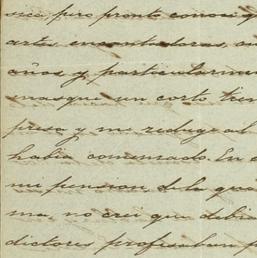 sica, pero pronto conocí q
artes encantadoras, m
años y particularme
mas que un corto tiem
presa y me reduge al
habia comensado. En e
mi pension de la qua
ma, no crei que debia
dictores profesaban p